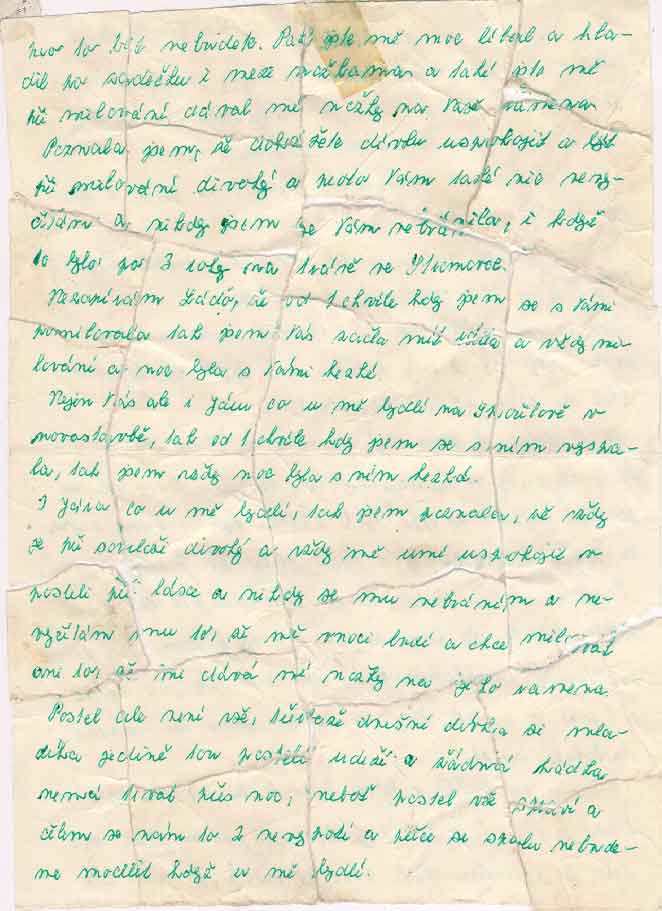 to být nebude. Pak jste mě moc líbal a hla-
dil po srdéčku i mezi nožkama a také jste mě
při milování dával mé nožky na Vaše ramena
Poznala jsem, že dokážete dívku uspokojit a být
při milování divoký a proto Vám také nic nevy-
čítám a nikdy jsem se Vám nebránila, i když
to bylo po 3 roky na trávě ve
Nezapírám Láďo, že od 1 chvíle kdy jsem se s Vámi
pomilovala tak jsem Vás začla mít ráda a vždy mi-
lování a noc byla s Vámi hezké
Nejen Vás ale i Járu co u mě bydlí na v
novostavbě, tak od 1 chvíle kdy jsem se s ním vyspa-
la, tak jsem vždy noc byla s ním hezká.
I Jára co u mě bydlí, tak jsem poznala, že vždy
je při souloži divoký a vždy mě umí uspokojit v
posteli při lásce a nikdy se mu nebráním a ne-
vyčítám mu to, že mě v noci budí a chce milovat
ani to, že mi dává mé nožky na jeho ramena.
Postel ale není vše, dnešní dívka si mla-
díka jedině tou postelí udrží a žádná hádka
nemá trvat přes noc, neboť postel vše spraví a
čílem se nám to 2 nevyhodí a přece se spolu nebude-
me modlit když u mě bydlí.